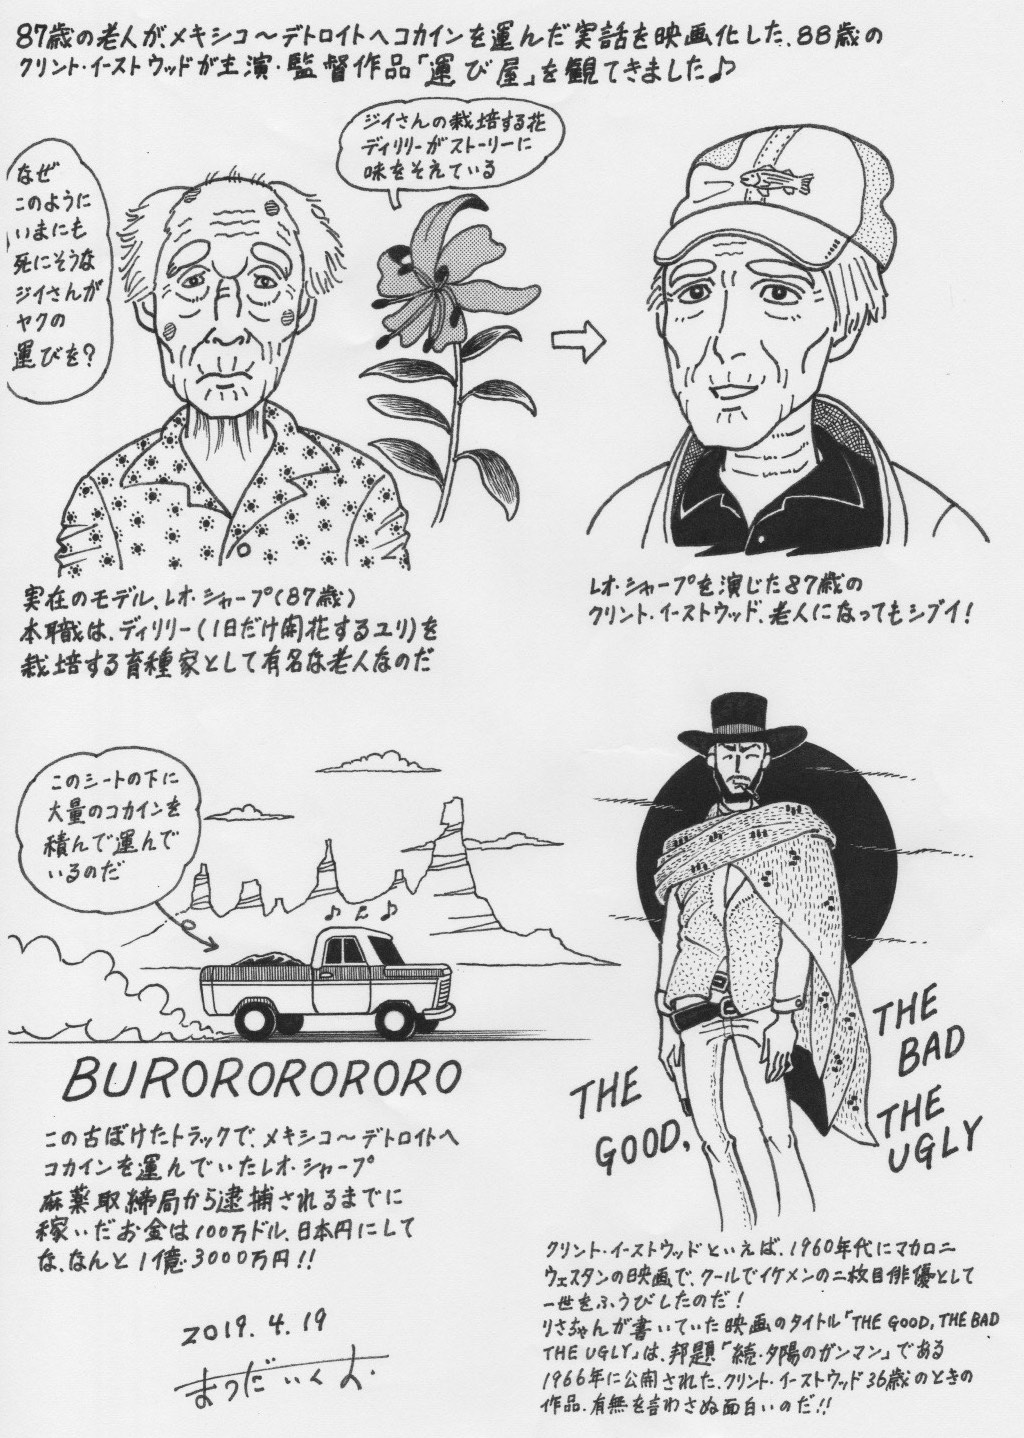 87歳の老人が、メキシコ〜デトロイトへコカインを運んだ実話を映画化した、88歳の
クリント・イーストウッドが主演・監督作品「運び屋」を観てきました♪
なぜ
このように
いまにも
死にそうな
ジイさんが
ヤクの
運びを?
ジイさんの栽培する花
ディリリーがストーリーに
味をそえている
実在のモデル、レオ・シャープ(87歳)
本職は、ディリリー(1日だけ開花するユリ)を
栽培する育種家として有名な老人なのだ
レオ・シャープを演じた87歳の
クリント・イーストウッド、老人になってもシブイ!
このシートの下に
大量のコカインを
積んで運んで
いるのだ
BURORORORORO
この古ぼけたトラックで、メキシコ〜デトロイトへ
コカインを運んでいたレオ・シャープ
麻薬取締局から逮捕されるまでに
稼いだお金は100万ドル、日本円にして
な、なんと1億・3000万円!!
2019.4.19
まつだいくお.
THE
GOOD,
THE
BAD
THE
UGLY
クリント・イーストウッドといえば、1960年代にマカロニ
ウェスタンの映画で、クールでイケメンの二枚目俳優として
一世をふうびしたのだ!
りさちゃんが書いていた映画のタイトル「THE GOOD, THE BAD
THE UGLY」は、邦題「続・夕陽のガンマン」である
1966年に公開された、クリント・イーストウッド36歳のときの
作品、有無を言わさぬ面白いのだ!!